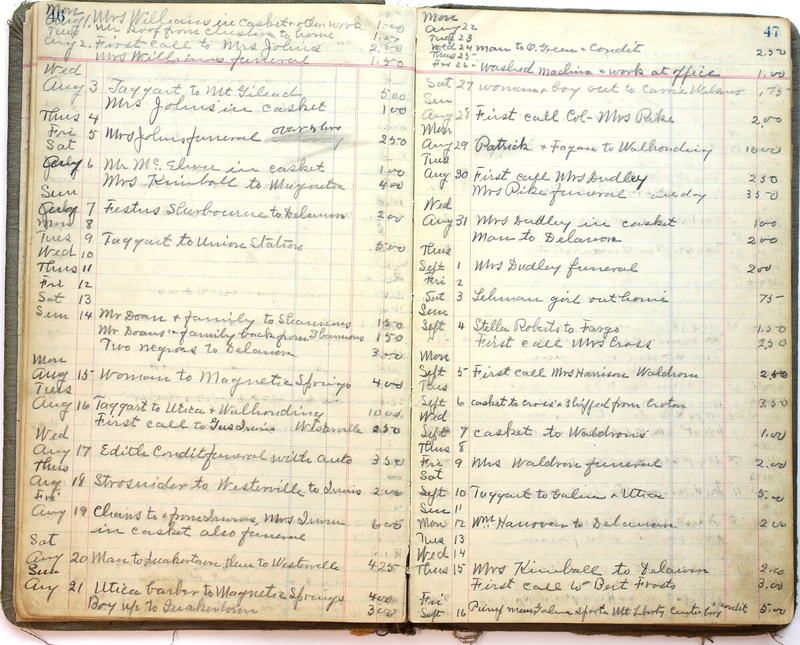 46
Mon
Aug 1. Mrs Williams in casket & other work 1.00
Tues Mr Roof from to home 1.00
Aug 2. First call to Mrs Johns 2.00
Mrs Williams funeral 1.50
Wed
Aug 3 Taggart to Mt Gilead 5.00
Mrs Johns in casket 1.00
Thus 4
Fri 5 Mrs Johns funeral 2.50
Sat
Aug 6 Mr Mc. in casket 1.00
Mrs Kimball to Magnetic 4.00
Sun
Aug 7 Festus Sherbourne to Delawon 2.00
Mon 8
Tues 9 Taggart to Union Station 5.00
Wed 10
Thus 11
Fri 12
Sat 13
Sun 14 Mr Doan & family to 1.50
Mr Doans & family back from 1.50
Two negroes to Delawon 3.00
Mon
Aug 15 Woman to Magnetic Springs 4.00
Tues
Aug 16 Taggart to Utica & Walhonding 10.00
First call to Gus Irwins Westerville 2.50
Wed
Aug 17 Edith Condit funeral with auto 3.50
Thus
Aug 18 Strosnider to Westerville to Irwins 2.00
Fri
Aug 19 Chairs to & from Irwins, Mrs Irwin 6.00
in casket also funeral
Sat
Aug 20 Man to Quakertown then to Westerville 4.25
Sun
Aug 21 Utica barber to Magnetic Springs 4.00
Boy up to Quakertown 3.00
47
Mon
Aug 22
Tues 23
Wed 24 Man to O. Green & Condit 2.50
Thus 25
Fri 26 Washed Machine & work at office 1.00
Sat 27 woman & boy out to Carrie .75
Sun
Aug 28 First call Col- Mrs Pike 2.00
Mon
Aug 29 Patrick & Fagan to Walhonding 10.00
Tues
Aug 30 First call Mrs Dudley 2.50
Mrs Pike funeral all day 3.50
Wed
Aug 31 Mrs Dudley in casket 1.00
Man to Delawon 2.00
Thus
Sept 1 Mrs Dudley funeral 2.00
Fri 2
Sat 3 Lehman girl out home 75
Sun
Sept 4 Stella Roberts to Fargo 1.50
First call Mrs Cross 2.50
Mon
Sept 5 First call Mrs Harrison Waldron 2.50
Tues
Sept 6 casket to Cross's & shipped from Croton 3.50
Wed
Sept 7 casket to Waldrons 1.00
Thus 8
Fri 9 Mrs Waldron funeral 2.00
Sat
Sept 10 Taggart to Galena & Utica 5.00
Sun 11
Mon 12 Wm Hanover to Delawon 2.00
Tues 13
Wed 14
Thus 15 Mrs Kimball to Delawon 2.00
First call to Bert Frosts 3.00
Fri
Sept 16 man Galena Sparta Mt Liberty Centerburg & Condit 5.00